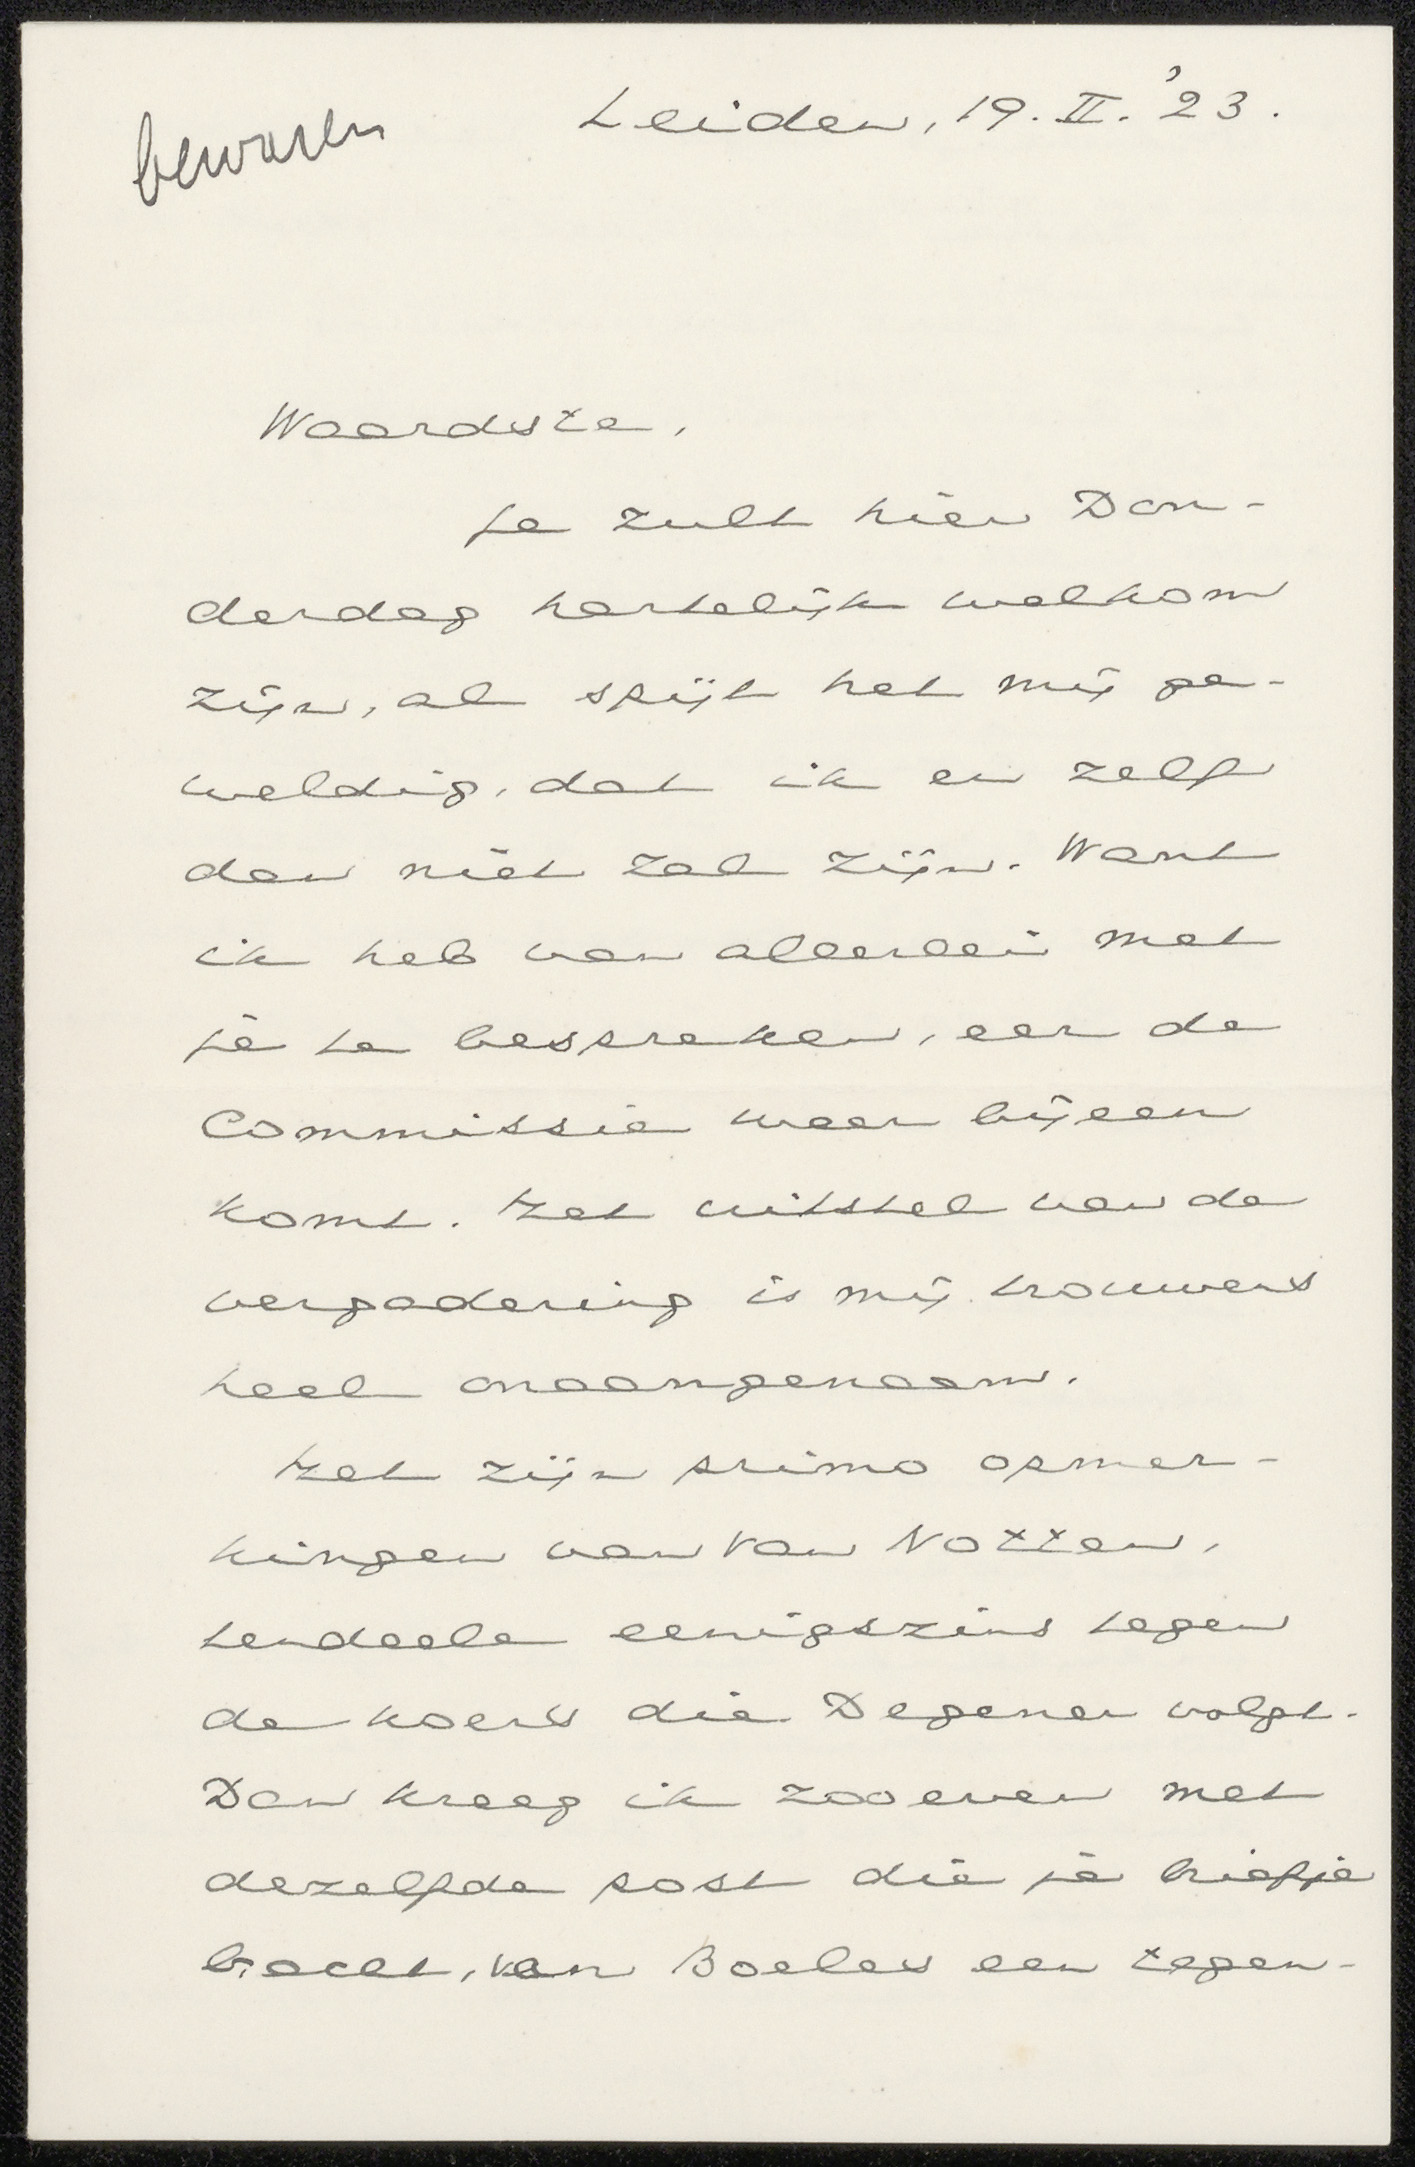 bewaren
Leiden, 19. II. '23.
Waardste,
Je zult hier Don-
derdag hartelijk welkom
zijn, al spijt het mij ge-
weldig, dat ik er zelf
dan niet zal zijn. Want
ik heb van allerlei met
je te bespreken, eer de
Commissie weer bijeen
komt. Het uitstel van de
vergadering is mij trouwens
heel onaangenaam.
Het zijn primo opmer-
kingen van Van Notten,
tendeele eenigszins tegen
de koers die Degener volgt.
Dan kreeg ik zooeven met
dezelfde post die je briefje
bracht, van Boeles een tegen-